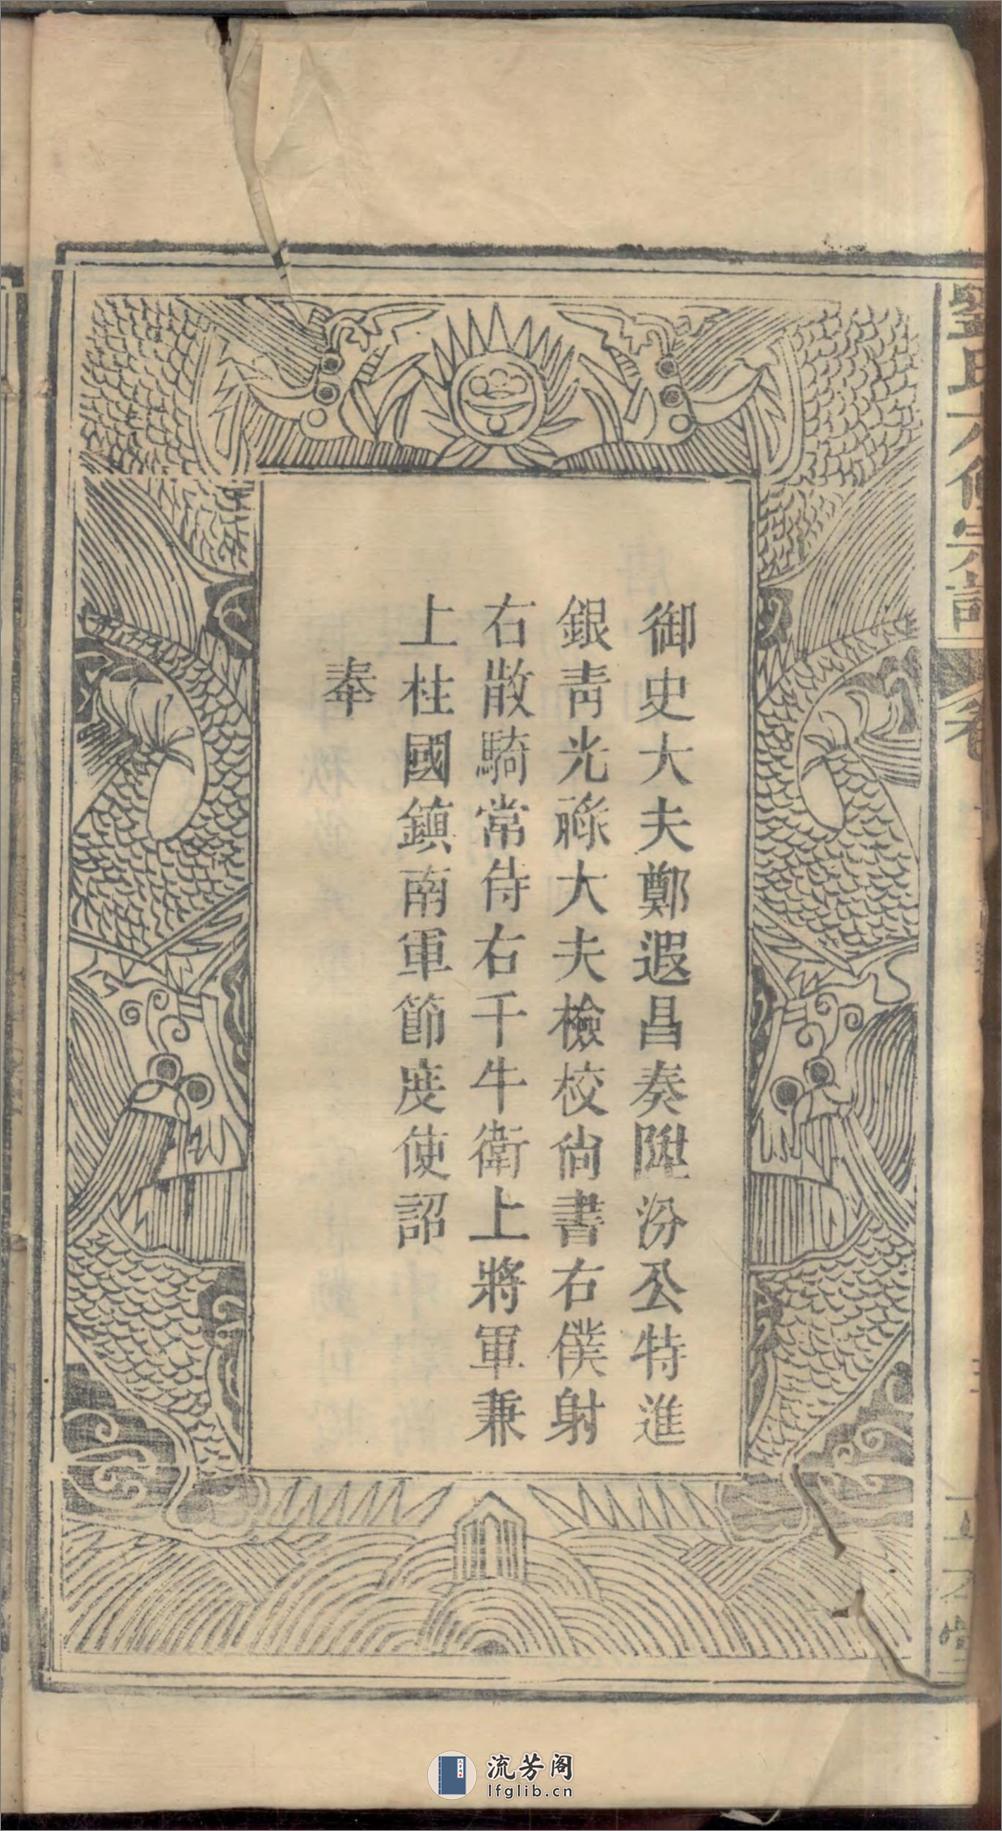 御史大夫鄭遐昌奏陞汾公特進
銀青光祿大夫檢校尙書右僕射
右散騎常侍右千牛衛上將軍兼
上柱國鎮南軍節度使詔
奉
流芳阁
lfglib.cn